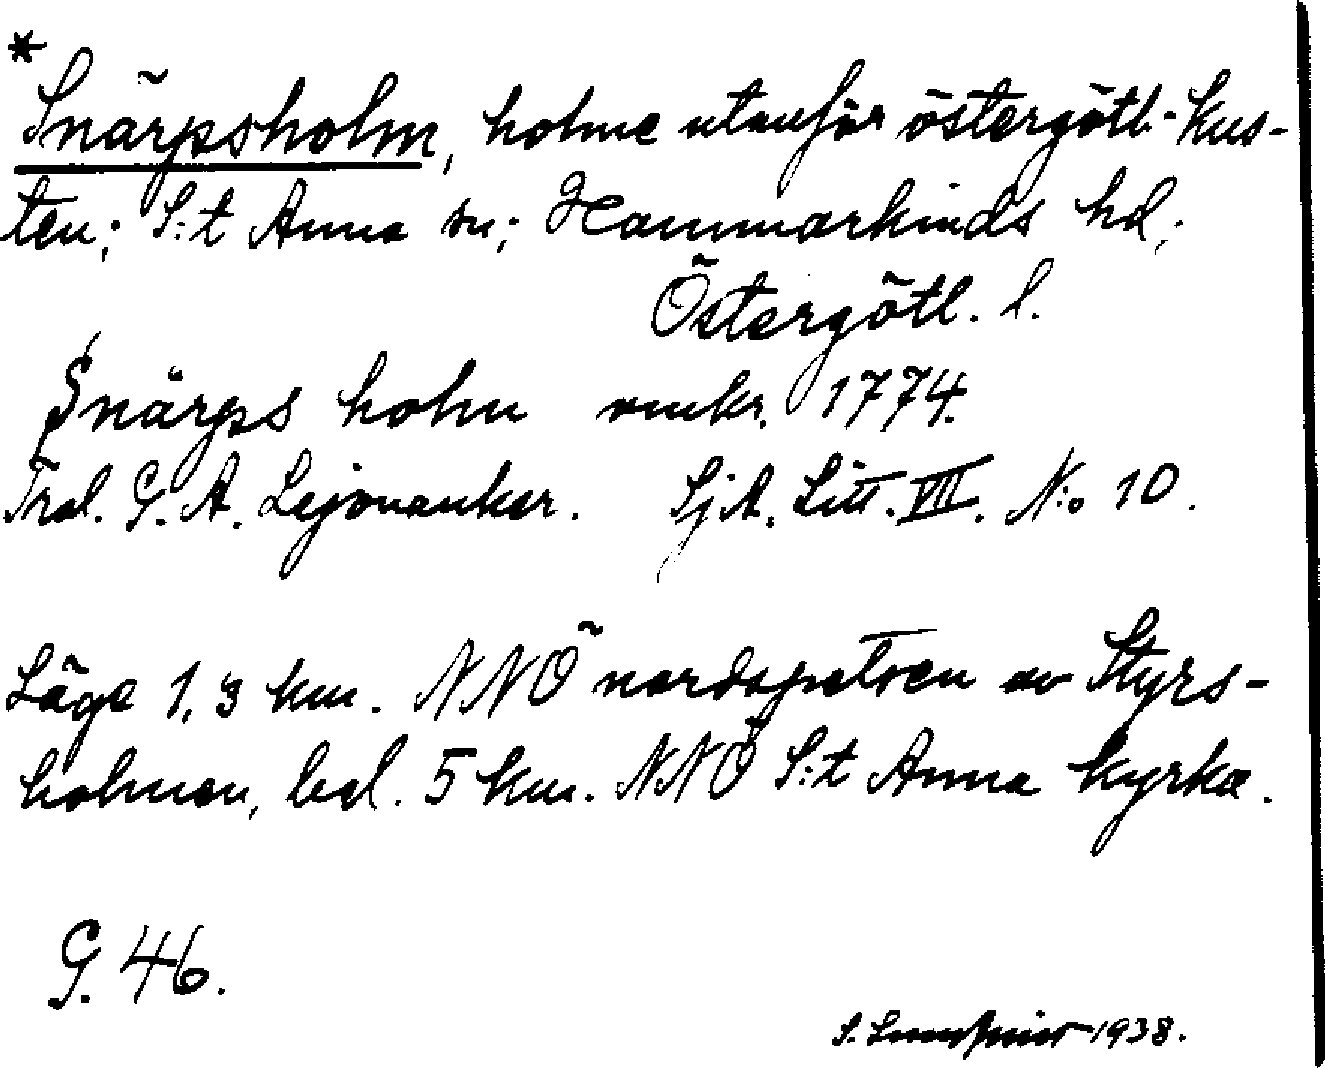 *
Snärpsholm, holme utanför östergötl. kus-
ten; S:t Anna sn; Hammarkinds hd;
Östergötl. l.
Snärps holm omkr. 1774.
Trol. G. A. Lejonanker. Sj.A. Litt. VIII. N:o 10.
Läge 1,3 km. NNÖ nordspetsen av Styrs-
holmen, bel. 5 km. NNÖ S:t Anna kyrka.
G. 46.
S. Lundqvist 1938.